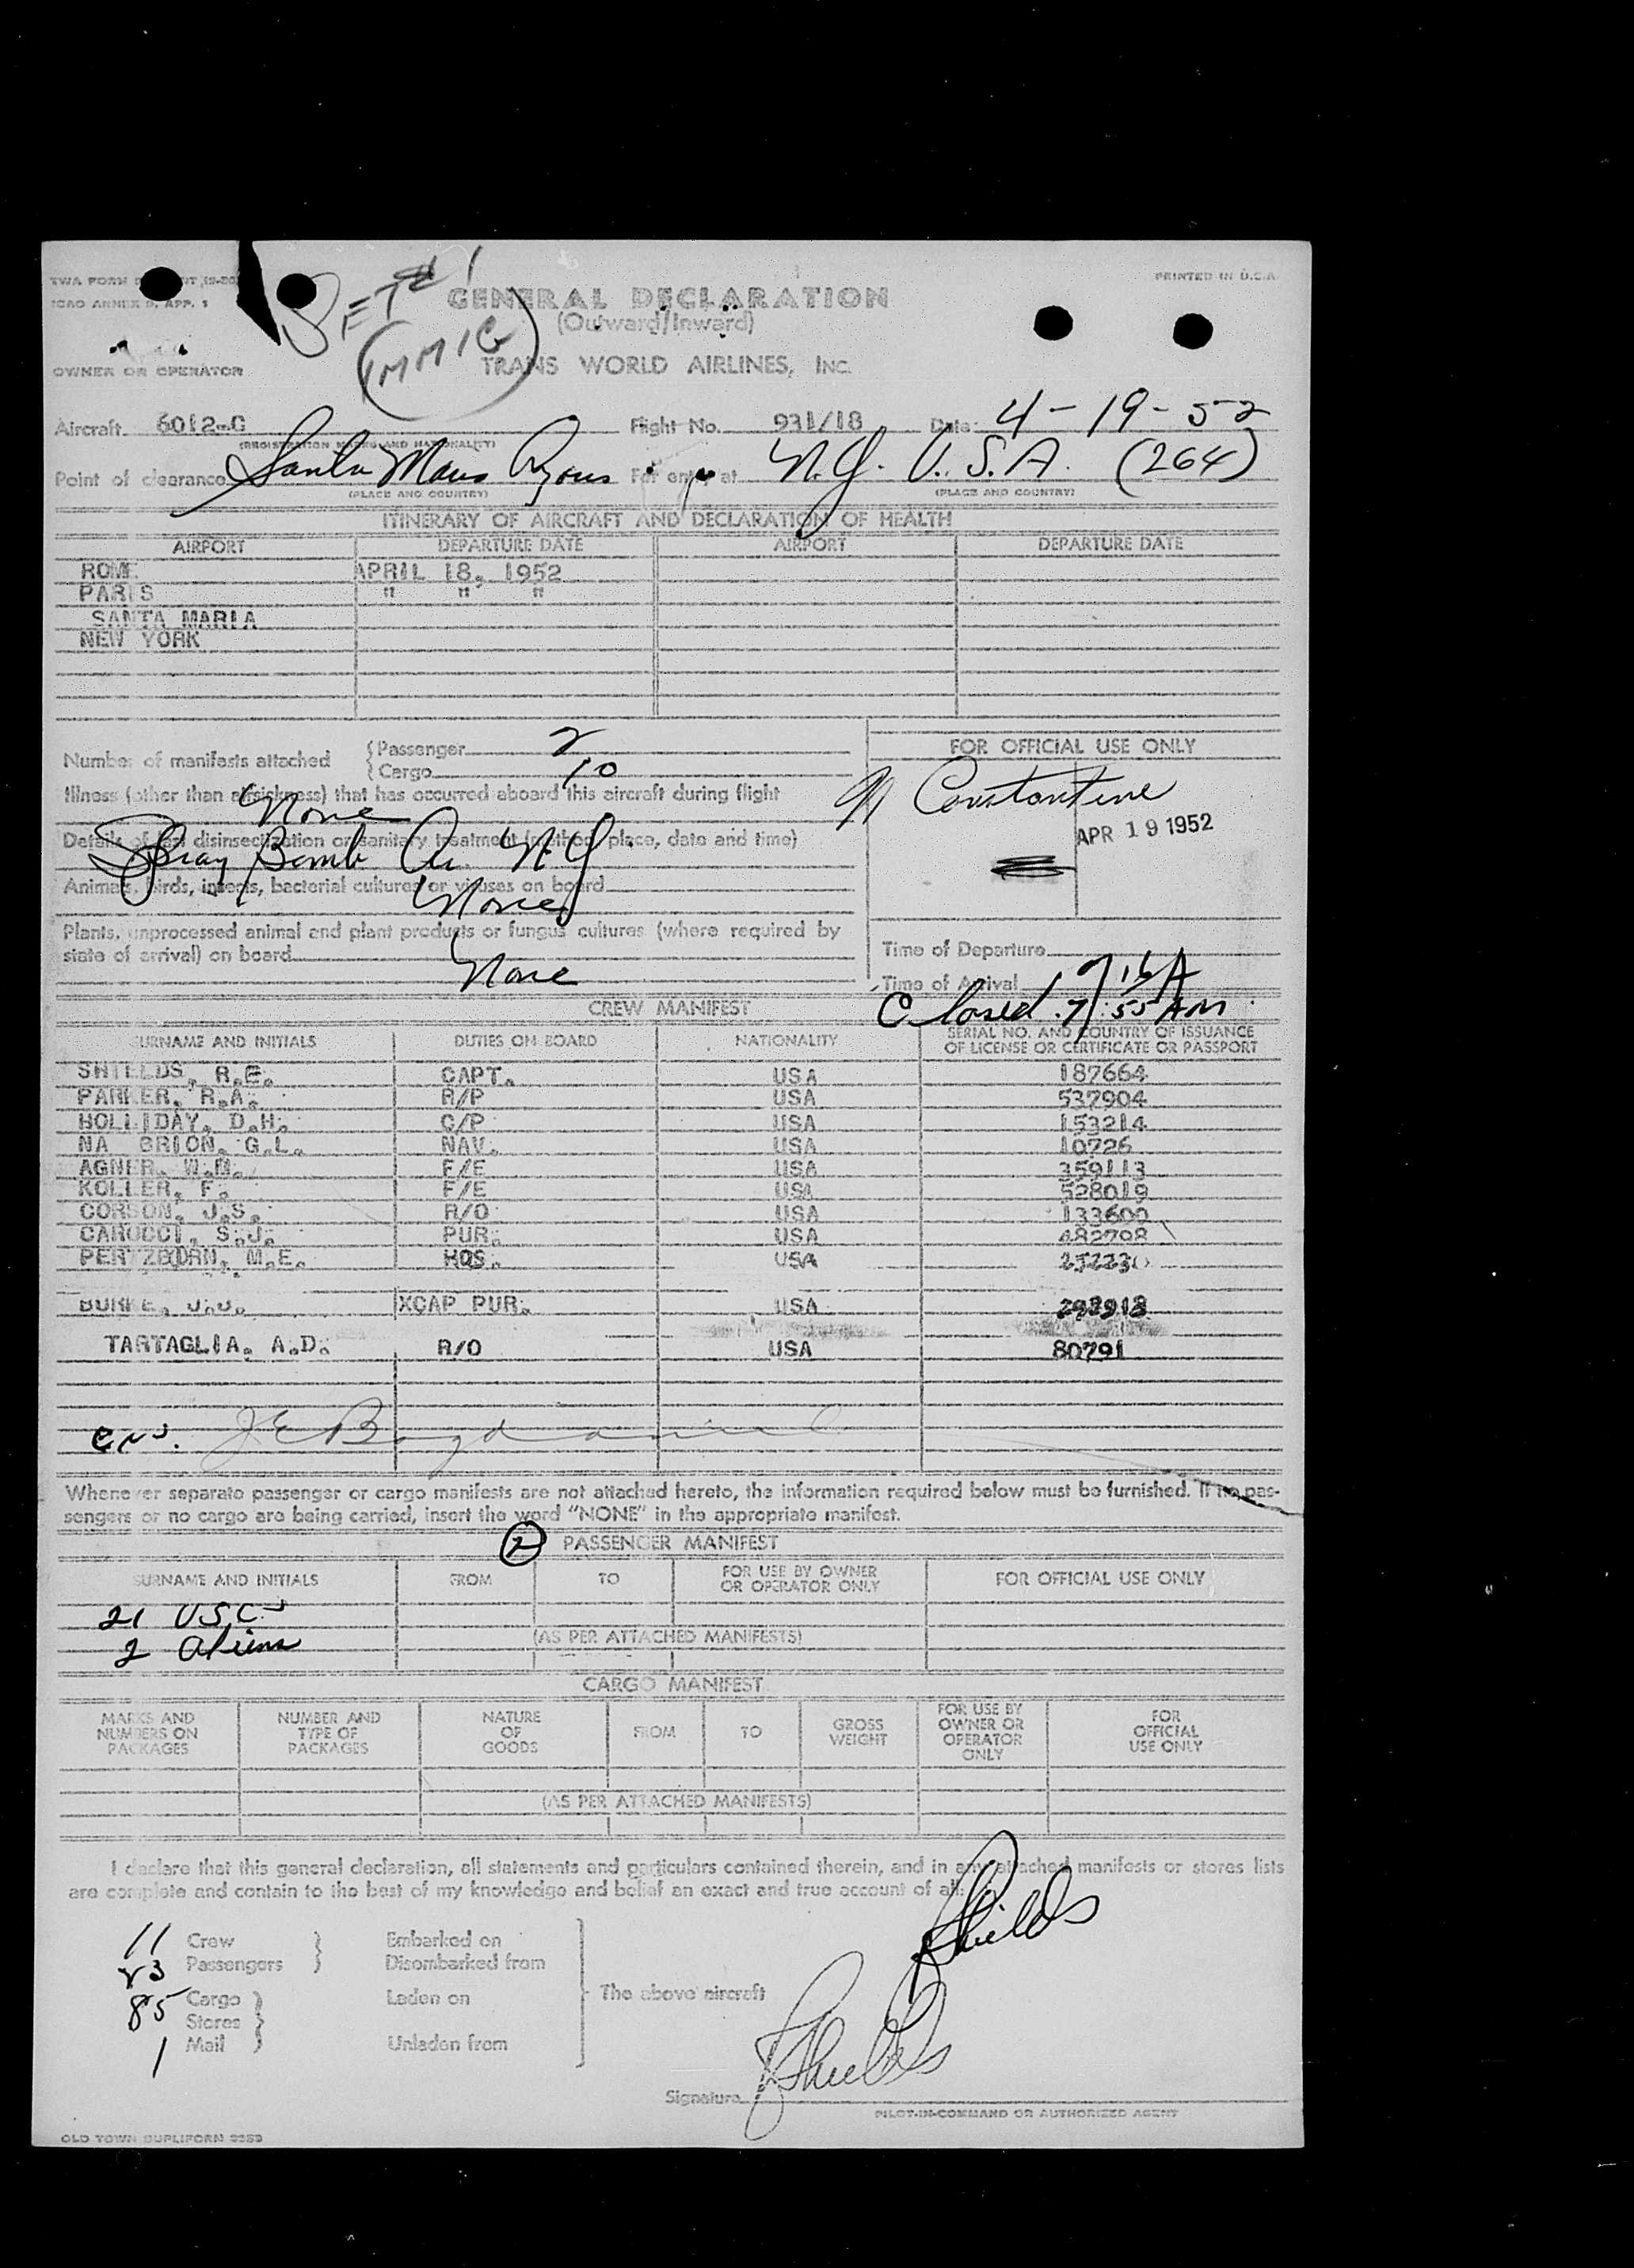 TWA FORM
PRINTED IN U.S.A.
ICAO ANNEX 9, APP. 1
SET #1
(IMMIG)
GENERAL DECLARATION
(Outward/Inward)
TRANS WORLD AIRLINES, INC.
OWNER OR OPERATOR
Aircraft 6012-C Flight No. 931/18 Date 4-19-52
(REGISTRATION MARKS AND NATIONALITY)
Point of clearance Santa Maria Azores For entry at N.Y. U.S.A. (264)
(PLACE AND COUNTRY) (PLACE AND COUNTRY)
ITINERARY OF AIRCRAFT AND DECLARATION OF HEALTH
AIRPORT DEPARTURE DATE AIRPORT DEPARTURE DATE
ROME APRIL 18, 1952
PARIS " " "
SANTA MARIA
NEW YORK
Number of manifests attached { Passenger 2
{ Cargo 10
FOR OFFICIAL USE ONLY
Illness (other than airsickness) that has occurred aboard this aircraft during flight
None
Constantine
APR 19 1952
Details of last disinsectization or sanitary treatment (method, place, date and time)
Spray Bomb Ar. N.Y.
Animals, birds, insects, bacterial cultures or viruses on board
None
Plants, unprocessed animal and plant products or fungus cultures (where required by
state of arrival) on board
None
Time of Departure
Time of Arrival
Closed 7:55 AM
CREW MANIFEST
SURNAME AND INITIALS DUTIES ON BOARD NATIONALITY SERIAL NO. AND COUNTRY OF ISSUANCE
OF LICENSE OR CERTIFICATE OR PASSPORT
SHIELDS, R.E. CAPT. USA 187664
PARKER, R.A. R/P USA 537904
HOLLIDAY, D.H. C/P USA 153214
NA BRION, G.L. NAV. USA 10726
AGNER, W.M. F/E USA 359113
KOLLER, F. F/E USA 528019
CORSON, J.S. R/O USA 133600
CAROCCI, S.J. PUR. USA 482798
PERTZBORN, M.E. HOS. USA
BURKE, J.J. XCAP PUR. USA
TARTAGLIA, A.D. R/O USA 80791
Whenever separate passenger or cargo manifests are not attached hereto, the information required below must be furnished. If no pas-
sengers or no cargo are being carried, insert the word "NONE" in the appropriate manifest.
2 PASSENGER MANIFEST
SURNAME AND INITIALS FROM TO FOR USE BY OWNER
OR OPERATOR ONLY FOR OFFICIAL USE ONLY
21 USC
2 Aliens
(AS PER ATTACHED MANIFESTS)
CARGO MANIFEST
MARKS AND
NUMBERS ON
PACKAGES
NUMBER AND
TYPE OF
PACKAGES
NATURE
OF
GOODS
FROM
TO
GROSS
WEIGHT
FOR USE BY
OWNER OR
OPERATOR
ONLY
FOR
OFFICIAL
USE ONLY
(AS PER ATTACHED MANIFESTS)
I declare that this general declaration, all statements and particulars contained therein, and in any attached manifests or stores lists
are complete and contain to the best of my knowledge and belief an exact and true account of all:
11 Crew } Embarked on
23 Passengers } Disembarked from
85 Cargo } Laden on
Stores }
1 Mail } Unladen from
The above aircraft
Shields
Signature Shields
PILOT-IN-COMMAND OR AUTHORIZED AGENT
OLD TOWN DUPLIFORM